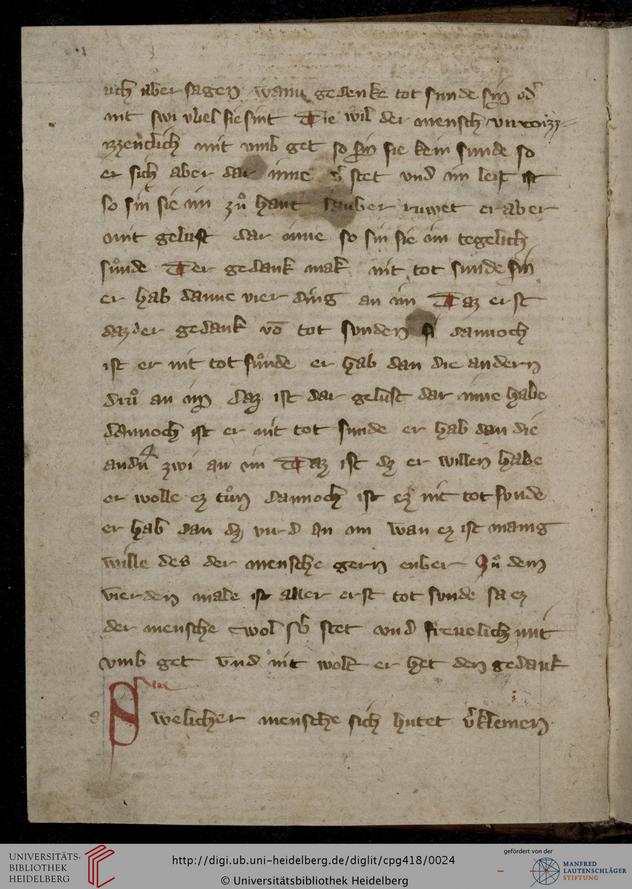 uch aber sagen wann gedenke tot sunde sin od̕
nit swi vbel sie sint Die wil der mensch vur
nit vmb get so sin sie kein sunde so
er sich aber dar inne v̕stet vnd im leit ist
so sint sie im zů hant sauber ruwet er aber
mit gelust dar inne so sin sie im tegelich
sůnde Der gedank mak nit tot sunde sin
er hab danne vier ding an im Daz erst
daz der gedank vō tot sunden si dannoch
ist er nit tot sůnde er hab dan die andern
driů an im daz ist daz gelust dar inne habe
dannoch ist er nit tot sunde er hab dan die
andn̕ zwi an im Daz ist dz er willen habe
er wolle ez tůn dannoch ist ez nit tot sunde
er hab dan dz vird an im wan ez ist manig
wille des der mensche gern enber Zů dem
vierden male ist aller erst tot sunde sa ez
der mensche wol v̕stet vnd freuelich mit
vmb get vnd nit wolt er het den gedank
Swelicher mensche sich hutet v̕klemen
UNIVERSITÄTS-
BIBLIOTHEK
HEIDELBERG
http://digi.ub.uni-heidelberg.de/diglit/cpg418/0024
© Universitätsbibliothek Heidelberg
gefördert von der
MANFRED
LAUTENSCHLÄGER
STIFTUNG